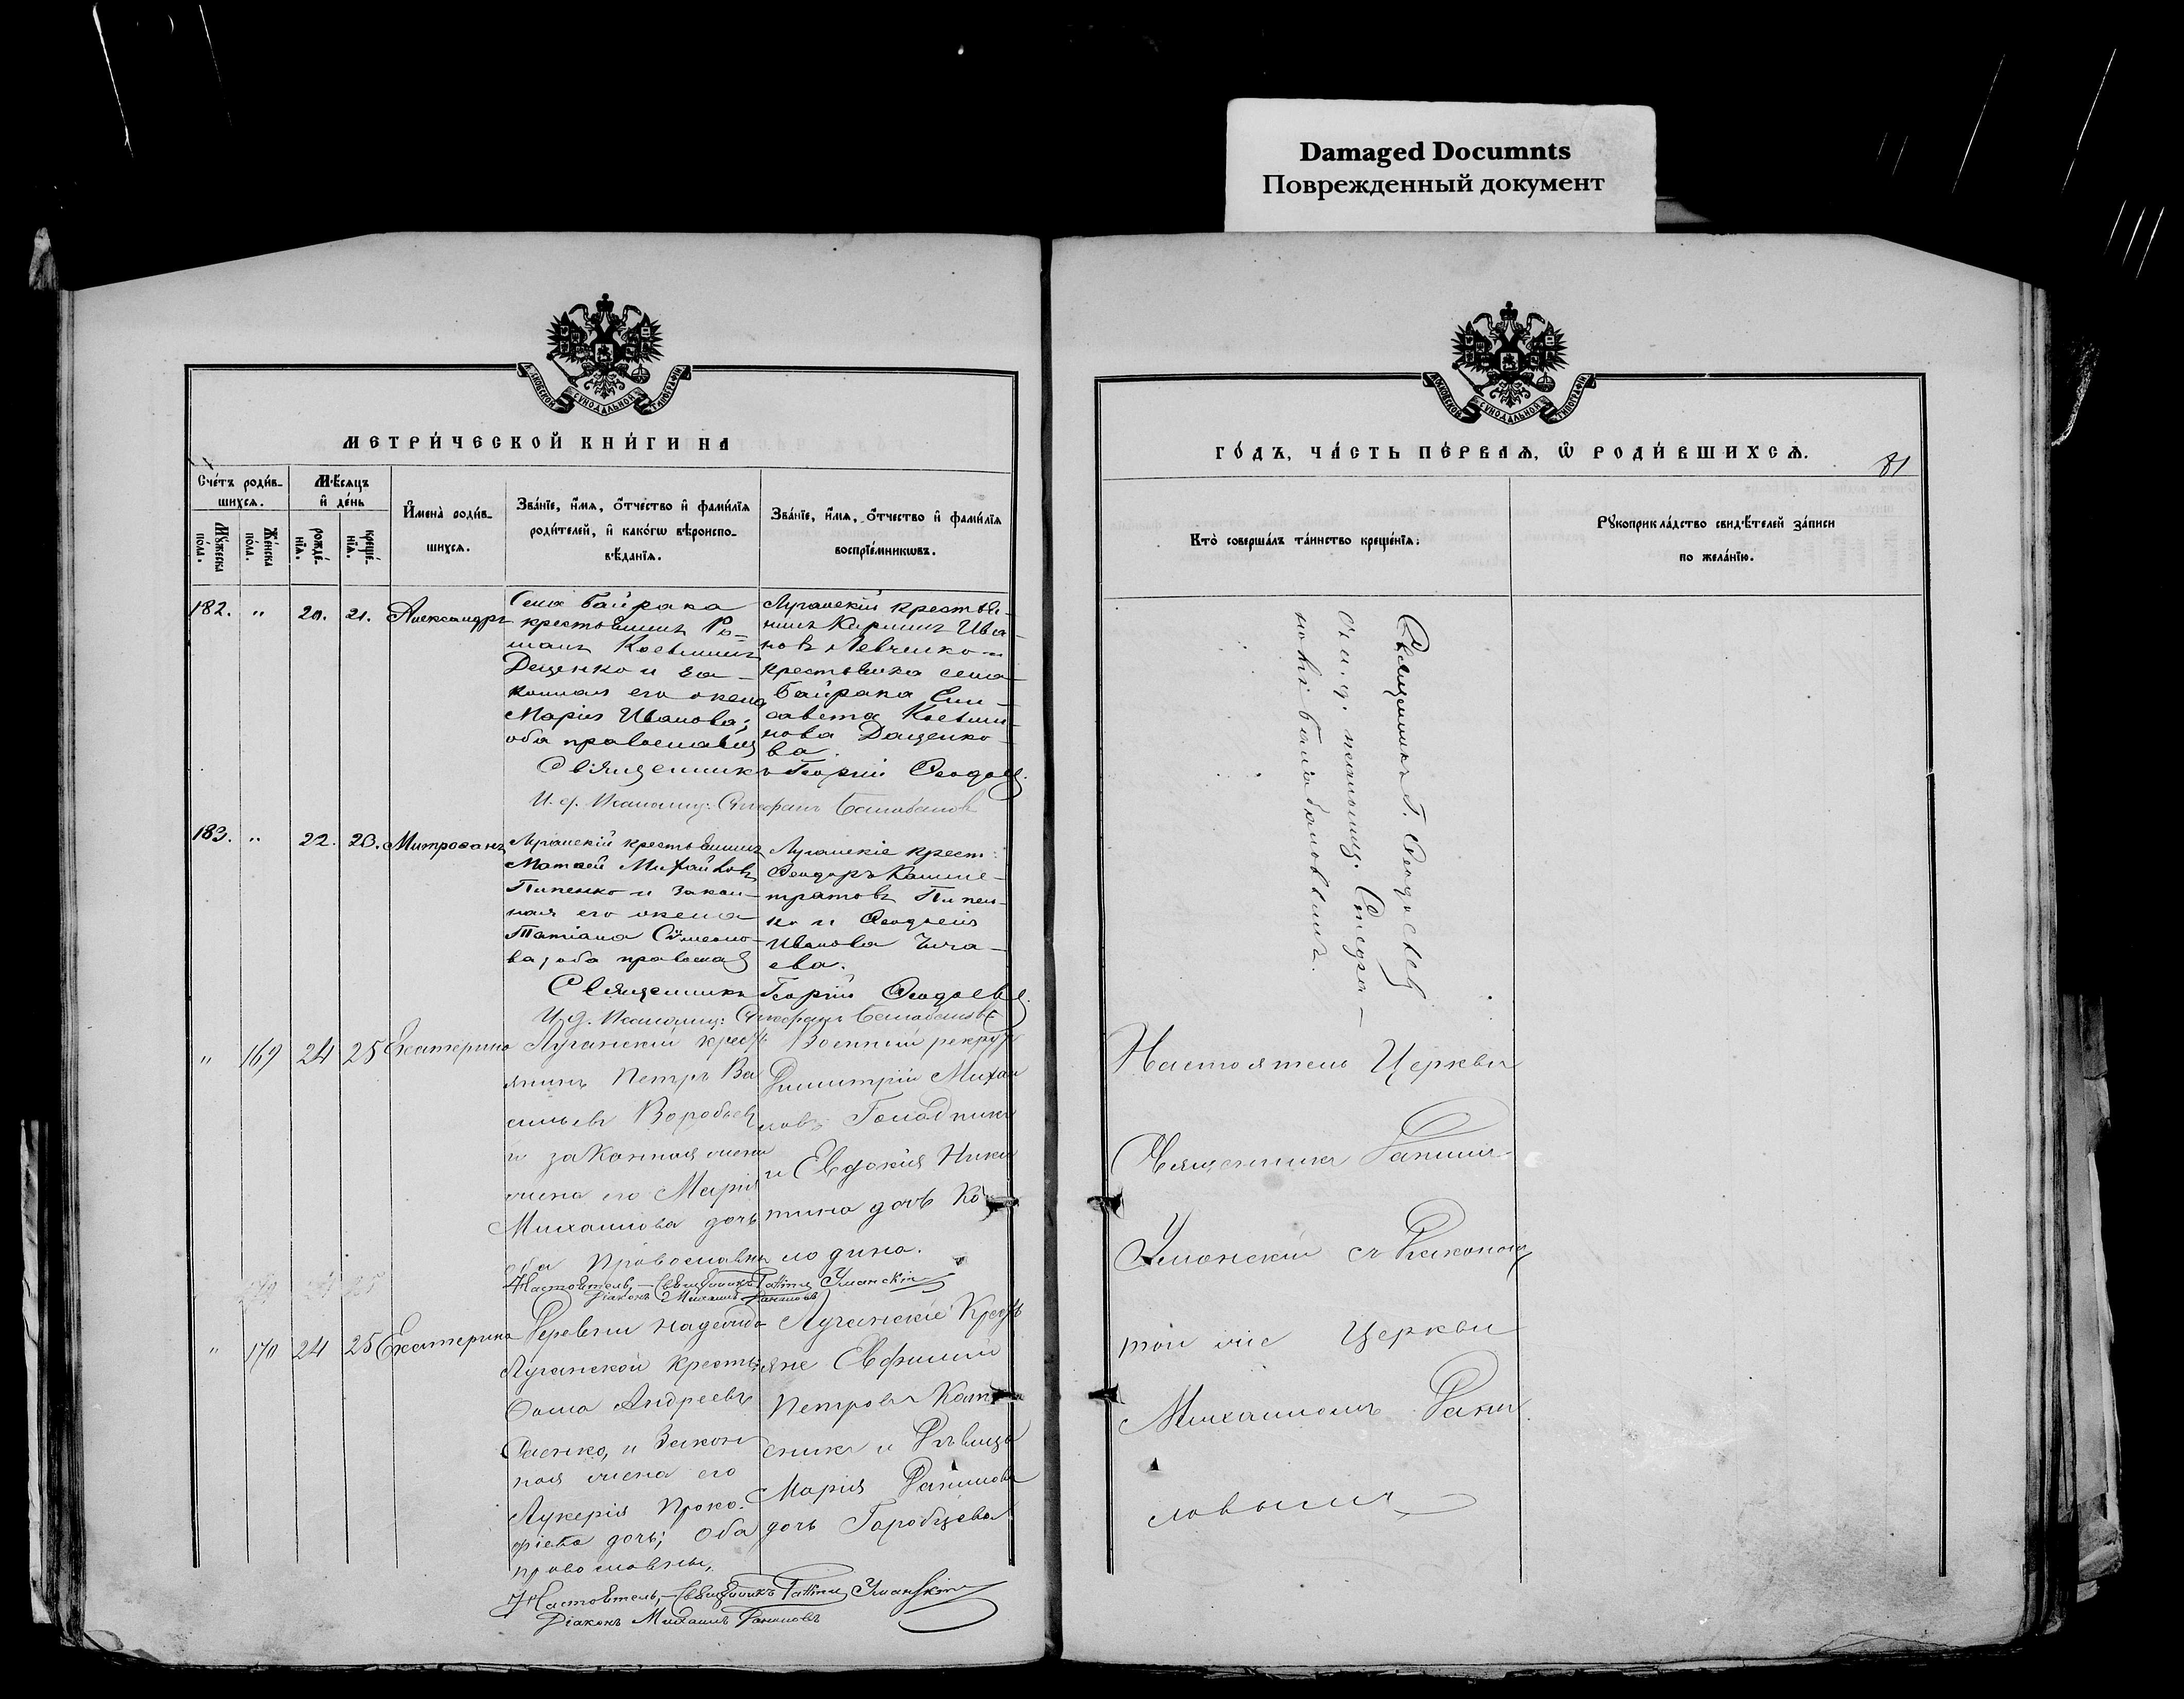 Damaged Documnts
Поврежденный документ
МОСКОВСКОЙ СѴНОДАЛЬНОЙ ТИПОГРАФІИ
МЕТРИ́ЧЕСКОЙ КНИ́ГИ НА
Сче́тъ роди́в-
шихсѧ.
Мꙋ́жеска
по́ла.
Же́нска
по́ла.
Мѣ́сѧцъ
и҆ де́нь
рожде́-
нїѧ.
креще́-
нїѧ.
И҆мена̀ роди́в-
шихсѧ.
Зва́нїе, и҆́мѧ, о҆́тчество и҆ фами́лїѧ
роди́телей, и҆ како́гѡ вѣроиспо-
вѣ́данїѧ.
Зва́нїе, и҆́мѧ, о҆́тчество и҆ фами́лїѧ
воспрїе́мникѡвъ.
182. " 20. 21. Александръ
Села Байрака
крестьянинъ Ро-
манъ Косьминъ
Дащенко и за-
конная его жена
Марія Иванова;
оба православн
Луганскій крестья-
нинъ Кириллъ Ива-
новъ Левченко и
крестьянка села
Байрака Ели-
савета Косьми-
нова Дащенко-
ва.
Священникъ Георгій Ѳеодос
И. д. Псаломщ: Стефанъ Балабановъ
183. " 22. 23. Митрофанъ
Луганскій крестьянинъ
Матѳей Михайловъ
Пипенко и закон-
ная его жена
Татіана Сѵмеоно-
ва, оба правосла
Луганскіе крест:
Ѳеодоръ Калис-
тратовъ Пипен-
ко и Ѳеодосія
Иванова Чига-
ева.
Священникъ Георгій Ѳеодосьев
И. д. Псаломщ: Стефанъ Балабановъ
" 169 24 25 Екатерина
Луганскій крест
янинъ Петръ Ва
сильевъ Воробьевъ
и законная
жена его Марія
Михаилова дочь
оба Православны
Военный рекрут
Димитрій Михаи
ловъ
и Евдокія Ники
тина дочь Ко
лодина.
Настоятель, Священникъ Уманскій
Діаконъ Михаилъ Даниловъ
" 170 24 25 Екатерина
Деревни
Луганской кресть
Ѳома Андреевъ
и Закон
ная жена его
Лукерія Проко-
фіева дочь; Оба
православны,
Луганскіе Крест
яне Евфимій
Петровъ
и Дѣвица
Марія Данилова
дочь
Настоятель, Священникъ Уманскій
Діаконъ Михаилъ Даниловъ
МОСКОВСКОЙ СѴНОДАЛЬНОЙ ТИПОГРАФІИ
ГО́ДЪ, ЧА́СТЬ ПЕ́РВАѦ, Ѡ҆ РОДИ́ВШИХСѦ.
81
Кто̀ соверша́лъ та́инство креще́нїѧ:
Рꙋкоприкла́дство свидѣ́телей за́писи
по жела́нїю.
Священникъ Г. Ѳеодосьев
съ и. д. псаломщ. Стефа-
номъ Балабановымъ.
Настоятель Церкви
Священникъ
Уманскій съ Діакономъ
той же Церкви
Михаиломъ Дани
ловымъ